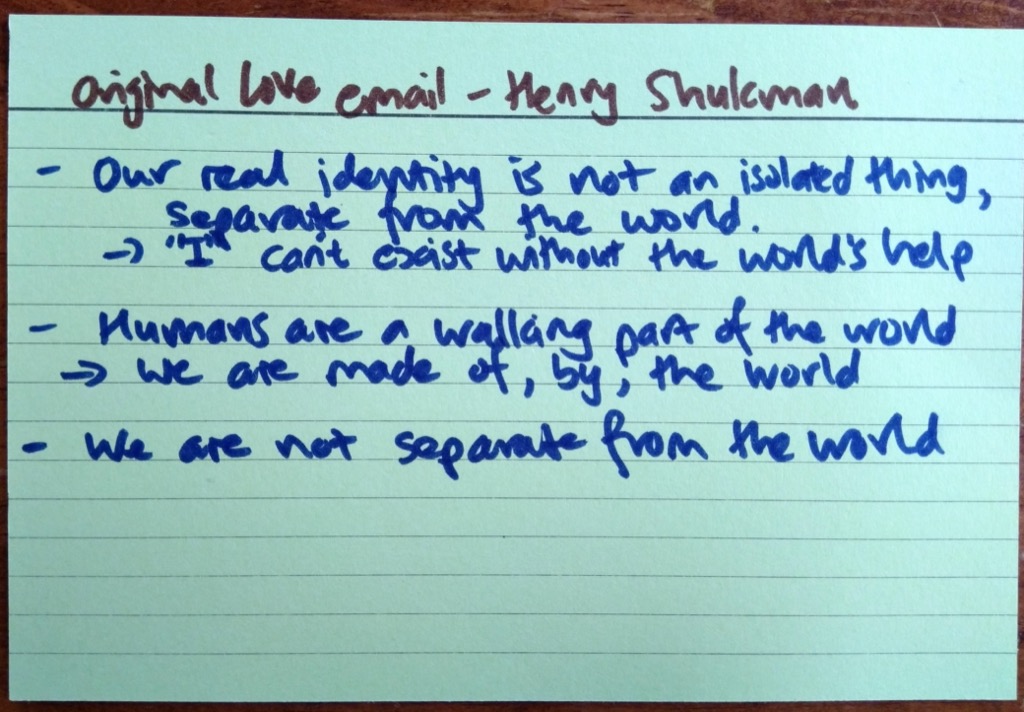 original love email - Henry Shukman
- Our real identity is not an isolated thing,
separate from the world.
→ "I" can't exist without the world's help
- Humans are a walking part of the world
→ we are made of, by, the world
- we are not separate from the world